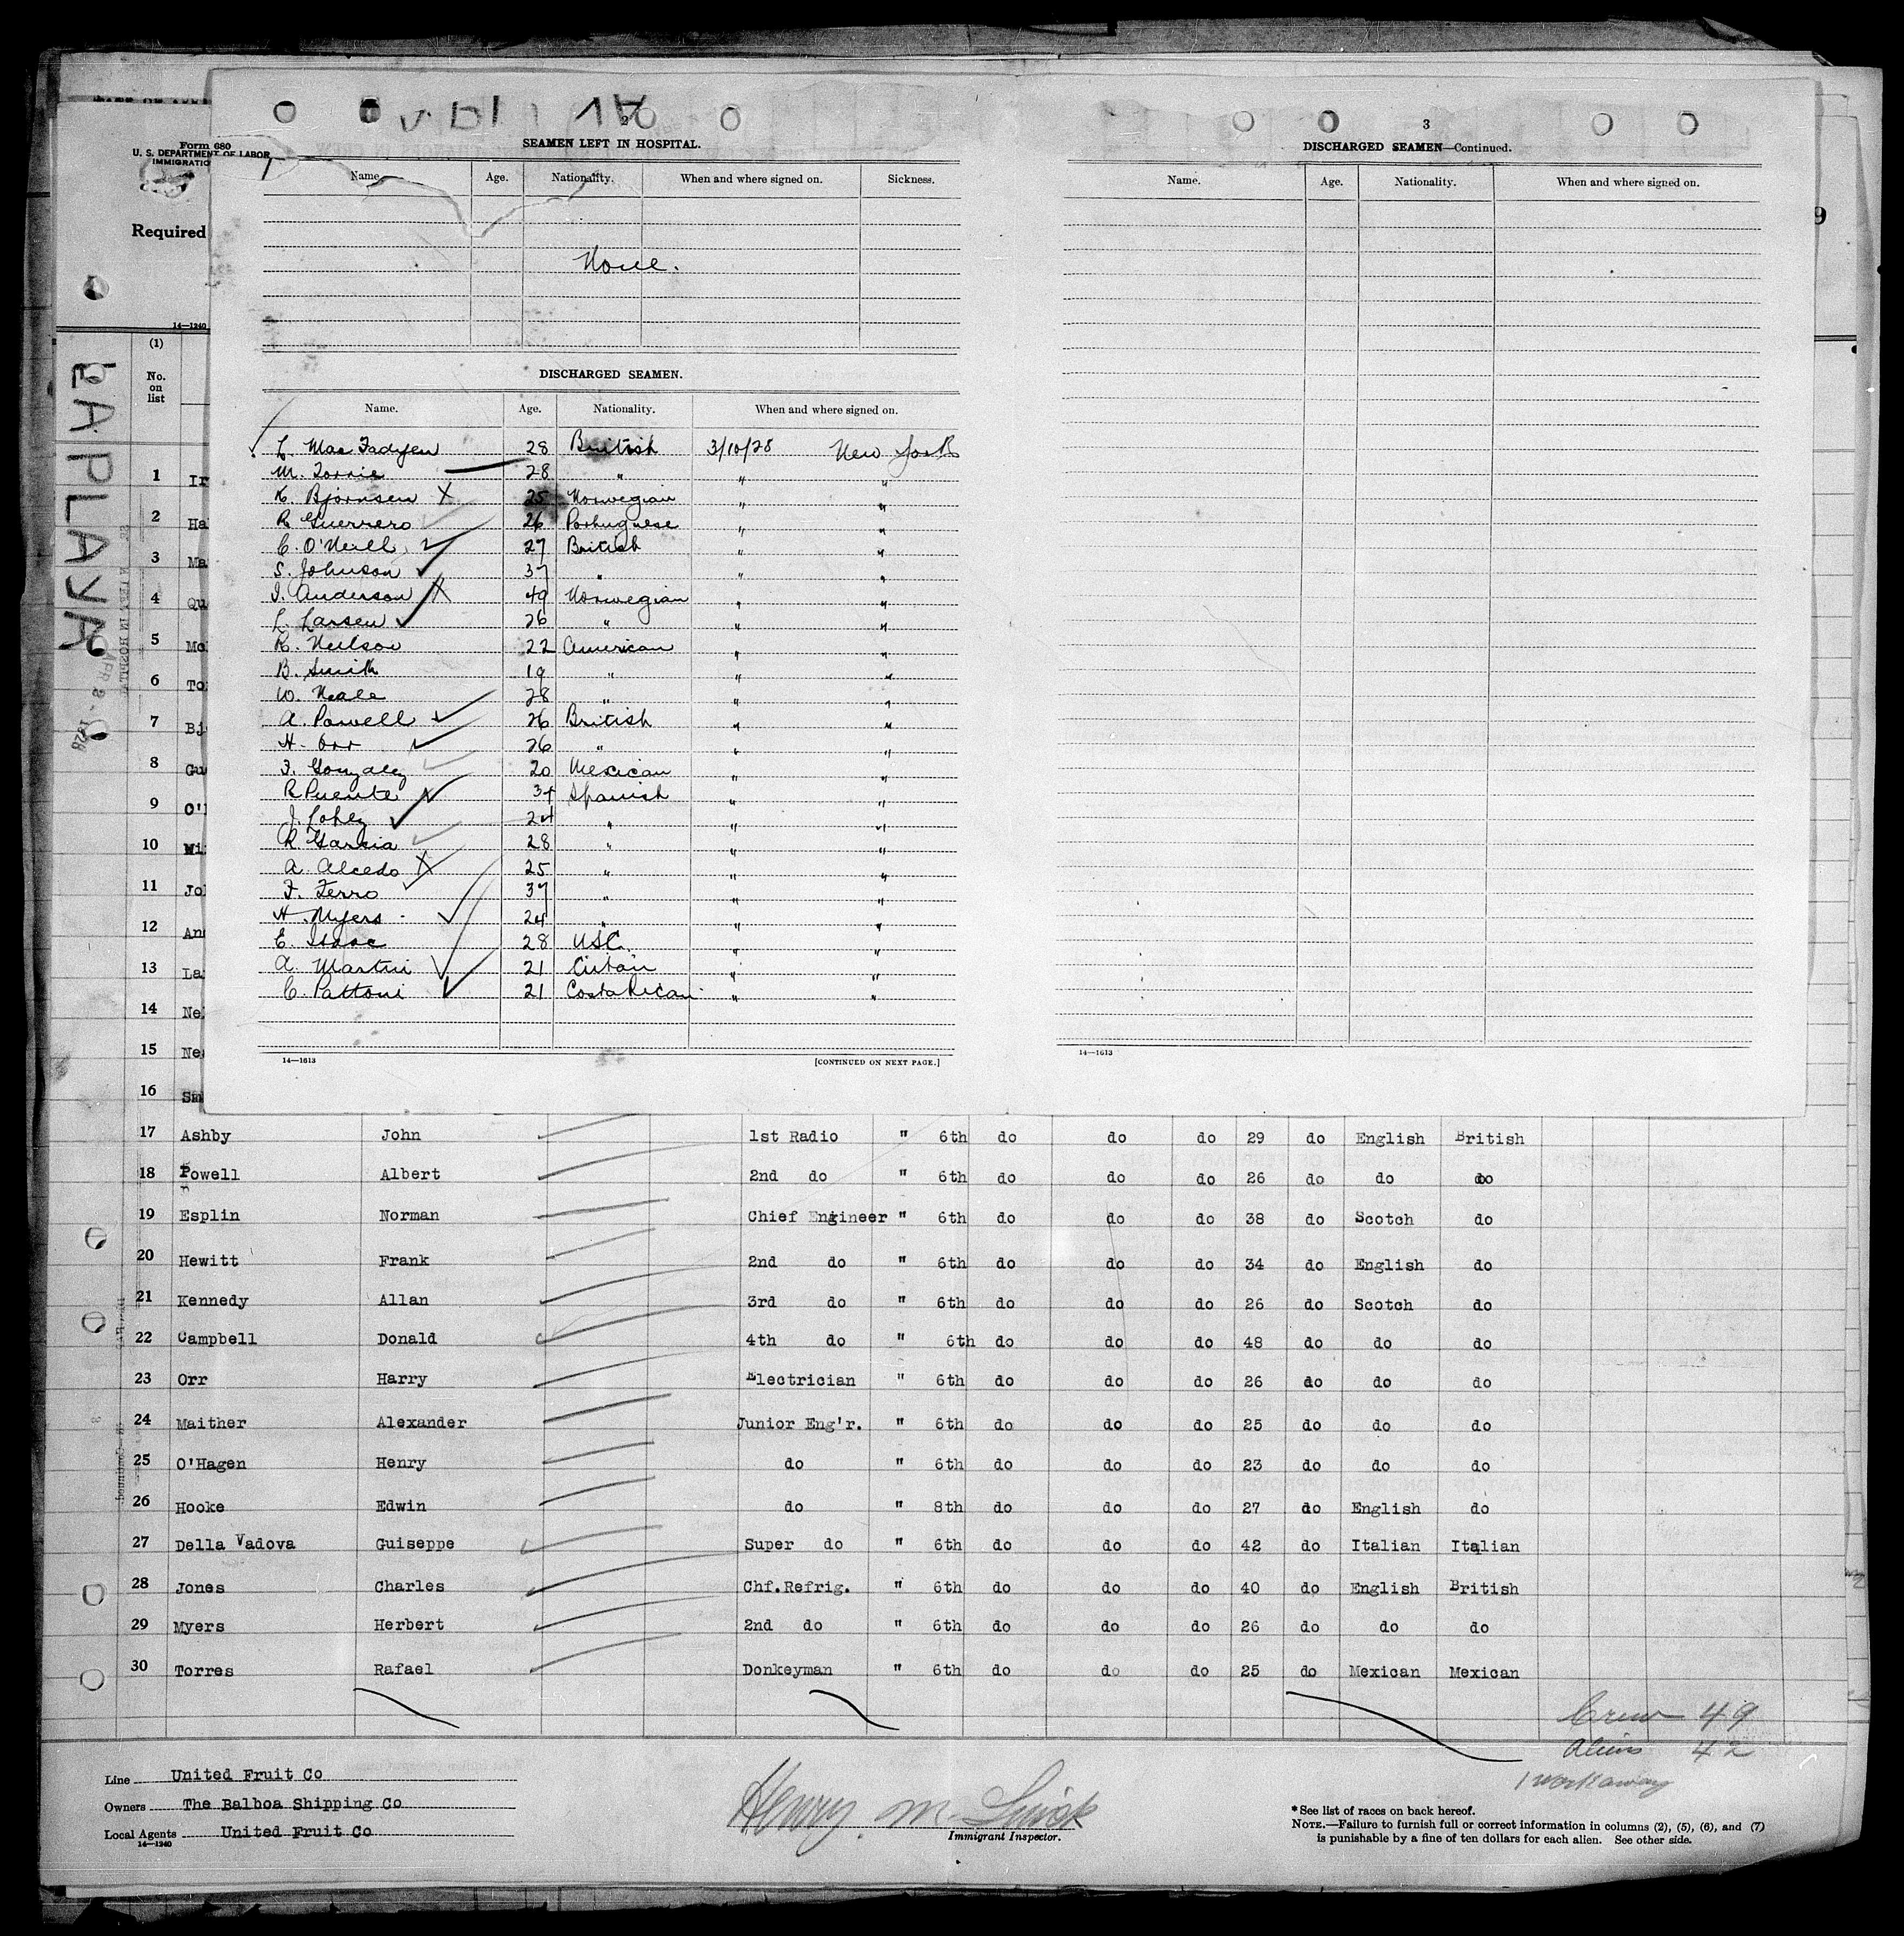 Form 680
U. S. DEPARTMENT OF LABOR
IMMIGRATIO
Required
14—1240
(1)
No. on list
LA PLAYA
2
SEAMEN LEFT IN HOSPITAL.
Name. Age. Nationality. When and where signed on. Sickness.
None.
DISCHARGED SEAMEN.
Name. Age. Nationality. When and where signed on.
L. MacFadyen 28 British 3/10/28 New York
M. Torrie 28 " " "
K. Bjornsen X 25 Norwegian " "
R. Guerrero 26 Portuguese " "
C. O'Neill 27 British " "
S. Johnson 37 " " "
I. Anderson X 49 Norwegian " "
L. Larsen 26 " " "
R. Neilson 22 American " "
B. Smith 19 " " "
W. Neale 28 " " "
A. Powell 26 British " "
H. Orr 26 " " "
F. Gonzalez 20 Mexican " "
R. Puente 34 Spanish " "
J. Lopez 24 " " "
R. Garcia 28 " " "
A. Alcedo X 25 " " "
F. Ferro 37 " " "
H. Myers 24 " " "
E. Isaac 28 USC. " "
A. Martini 21 Cuban " "
C. Pattoni 21 Costa Rican " "
14—1613 [CONTINUED ON NEXT PAGE.]
3
DISCHARGED SEAMEN—Continued.
Name. Age. Nationality. When and where signed on.
14—1613
9
1 Ir
2 Ha
3 Ma
4 Qu
5 Mo
6 To
7 Bj
8 Gu
9 O'
10 Wi
11 Jo
12 An
13 La
14 Ne
15 Ne
16 Sm
17 Ashby John 1st Radio " 6th do do do 29 do English British
18 Powell Albert 2nd do " 6th do do do 26 do do do
19 Esplin Norman Chief Engineer " 6th do do do 38 do Scotch do
20 Hewitt Frank 2nd do " 6th do do do 34 do English do
21 Kennedy Allan 3rd do " 6th do do do 26 do Scotch do
22 Campbell Donald 4th do " 6th do do do 48 do do do
23 Orr Harry Electrician " 6th do do do 26 do do do
24 Maither Alexander Junior Eng'r. " 6th do do do 25 do do do
25 O'Hagen Henry do " 6th do do do 23 do do do
26 Hooke Edwin do " 8th do do do 27 do English do
27 Della Vadova Guiseppe Super do " 6th do do do 42 do Italian Italian
28 Jones Charles Chf.Refrig. " 6th do do do 40 do English British
29 Myers Herbert 2nd do " 6th do do do 26 do do do
30 Torres Rafael Donkeyman " 6th do do do 25 do Mexican Mexican
Crew 49
Aliens 42
1 workaway
Line United Fruit Co
Owners The Balboa Shipping Co
Local Agents United Fruit Co
14—1240
Henry M.
Immigrant Inspector.
*See list of races on back hereof.
NOTE.—Failure to furnish full or correct information in columns (2), (5), (6), and (7)
is punishable by a fine of ten dollars for each alien. See other side.